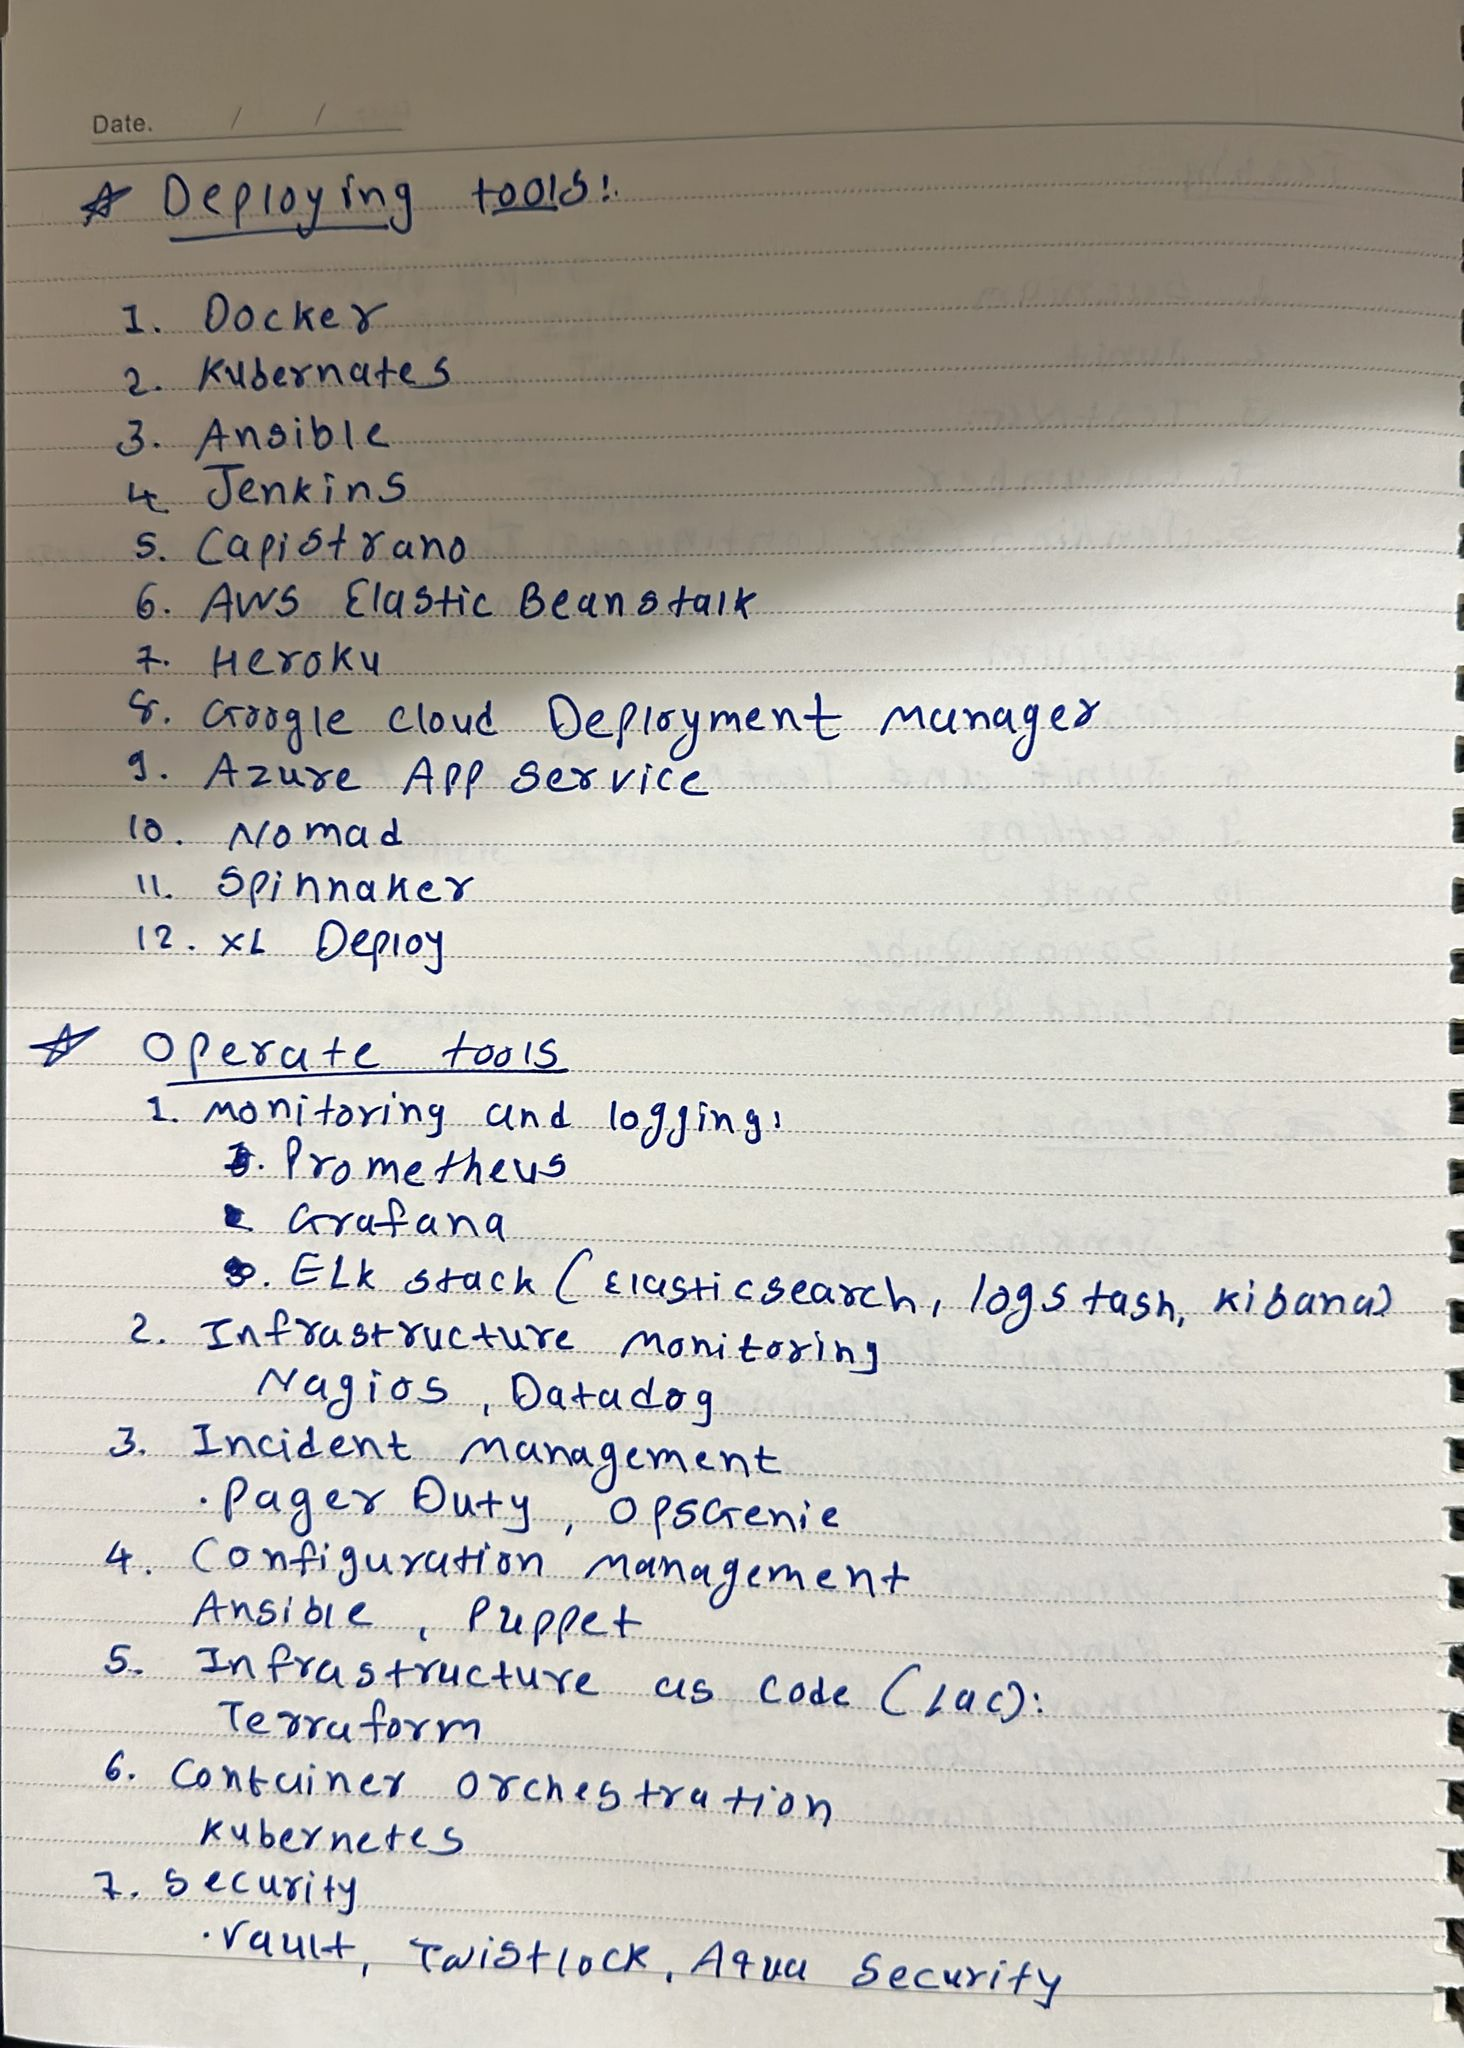 Date. / /
☆ Deploying tools:.
1. Docker
2. Kubernates
3. Ansible
4 Jenkins
5. Capistrano
6. AWS Elastic Beanstalk
7. Heroku
8. Google cloud Deployment manager
9. Azure App service
10. Nomad
11. Spinnaker
12. XL Deploy
☆ Operate tools
1. Monitoring and logging:
. Prometheus
Grafana
. ELK stack (Elasticsearch, logstash, kibana)
2. Infrastructure Monitoring
Nagios, Datadog
3. Incident Management
. Pager Duty, OpsGenie
4. Configuration Management
Ansible, Puppet
5. Infrastructure as code (Iac):
Terraform
6. Container orchestration
Kubernetes
7. Security
. Vault, Twistlock, Aqua Security